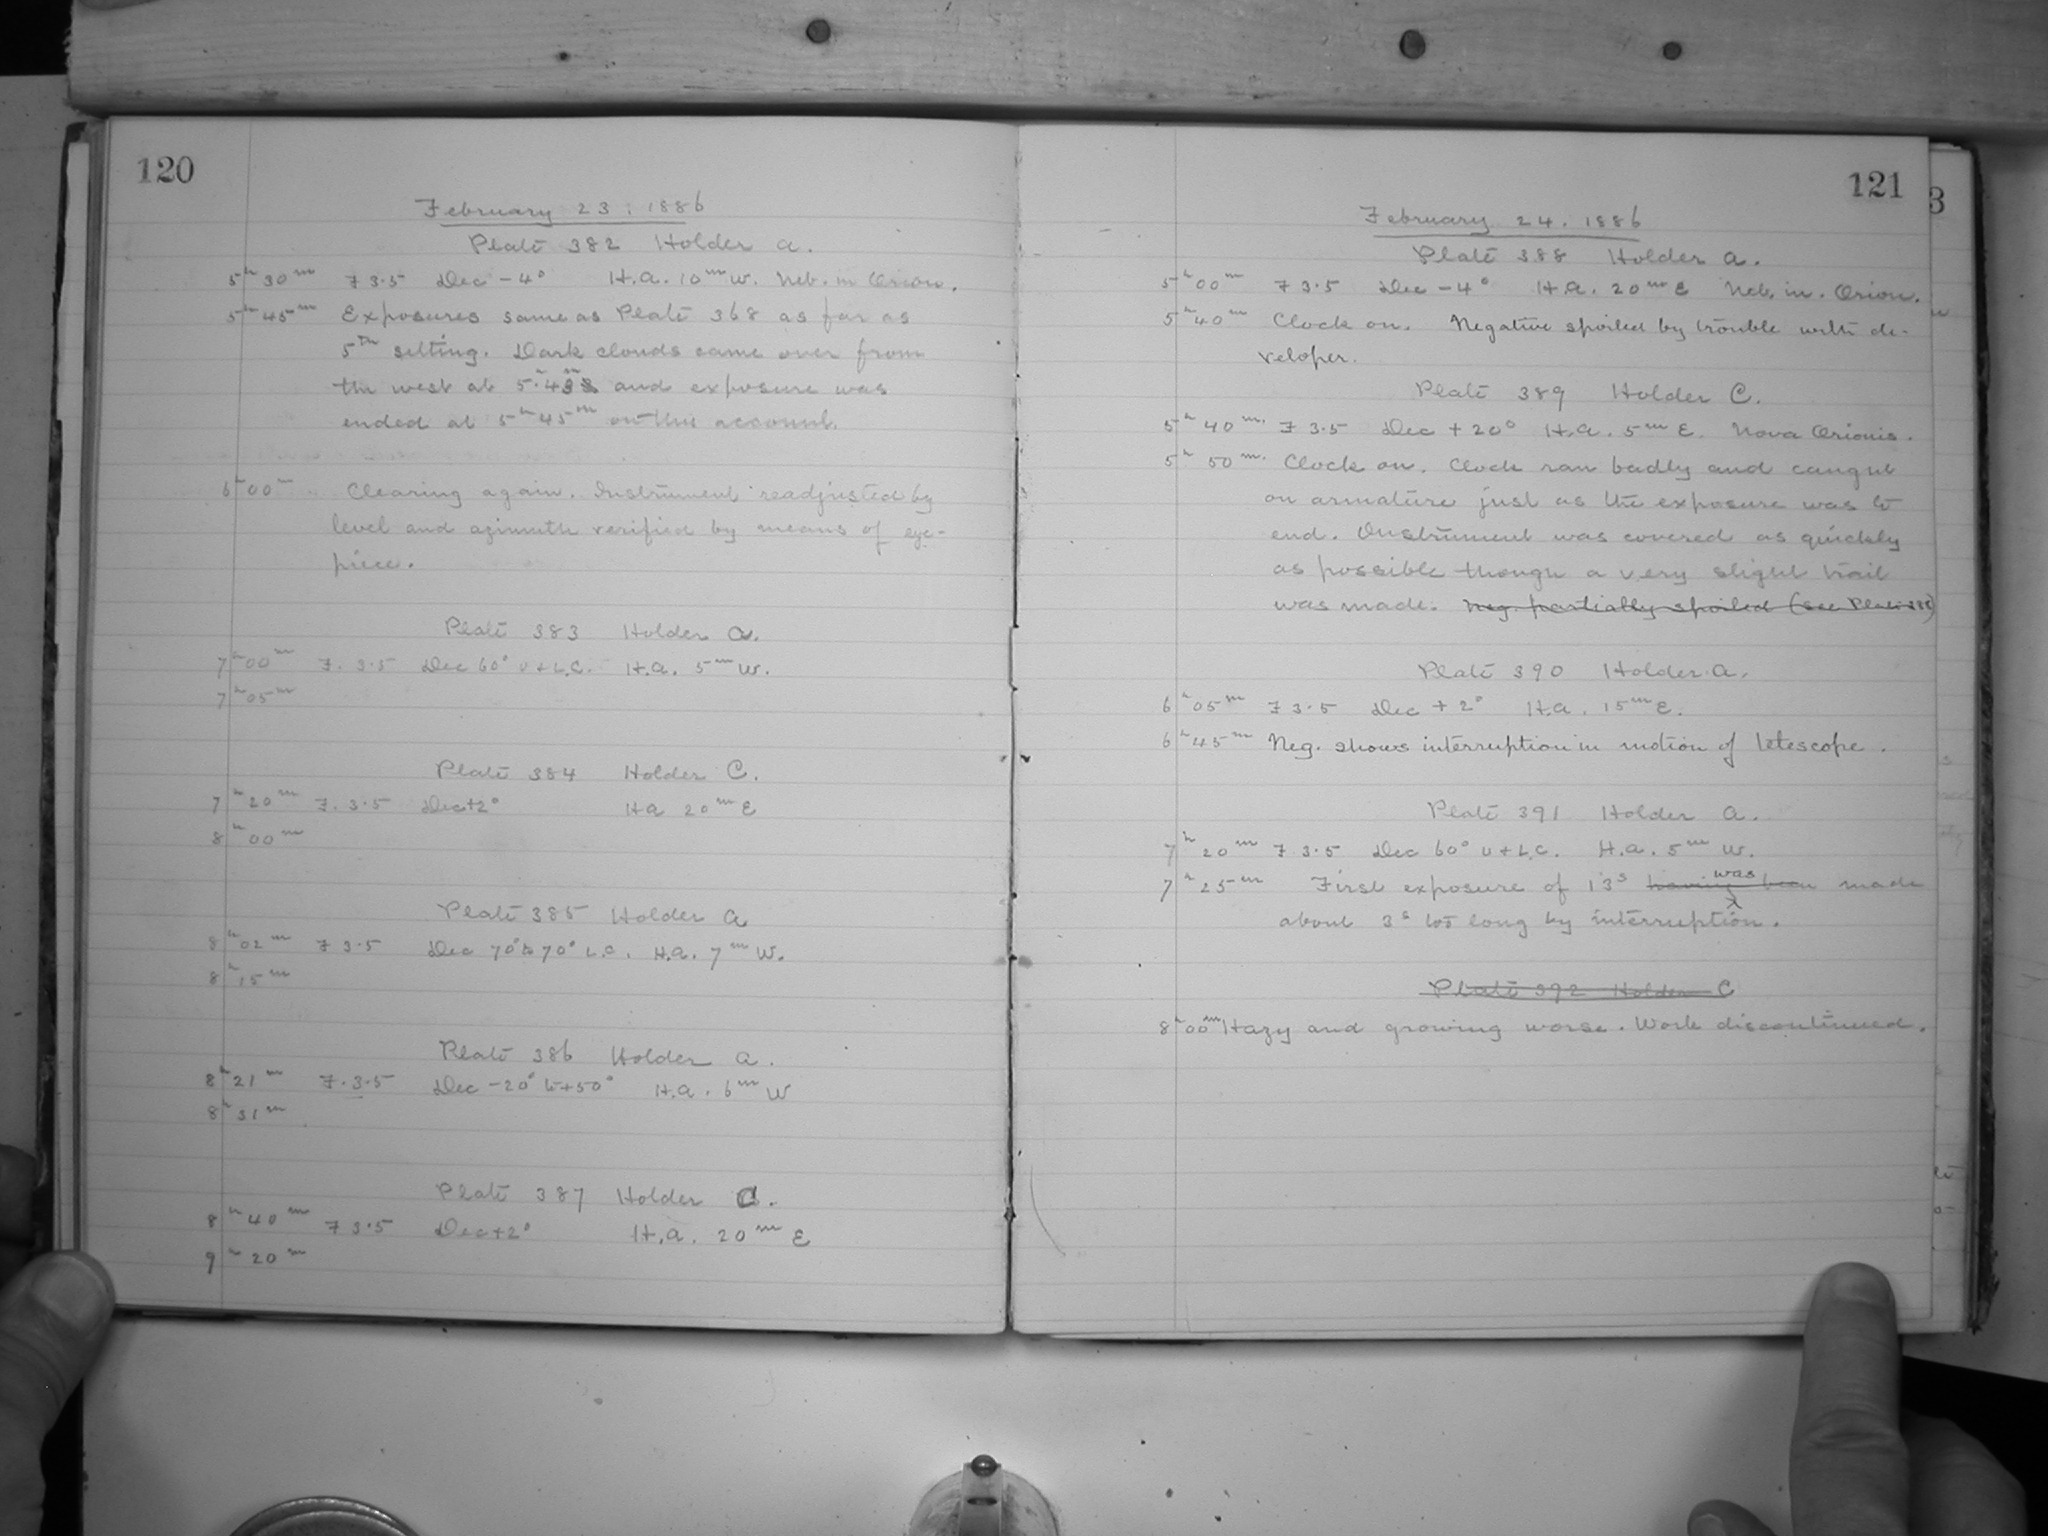 120
February 23, 1886
Plate 382 Holder A.
5h 30m F 3.5 Dec -4° H.A. 10m W. Neb. in Orion.
5h 45m Exposures same as Plate 368 as far as
5th setting. Dark clouds came over from
the west at 5h 43m and exposure was
ended at 5h 45m on this account.
6h 00m Clearing again. Instrument readjusted by
level and azimuth verified by means of eye-
piece.
Plate 383 Holder A.
7h 00m F. 3.5 Dec 60° U + L.C. H.A. 5m W.
7h 05m
Plate 384 Holder C.
7h 20m F. 3.5 Dec +2° H.A. 20m E
8h 00m
Plate 385 Holder A
8h 02m F 3.5 Dec 70° to 70° L.C. H.A. 7m W.
8h 15m
Plate 386 Holder A.
8h 21m F. 3.5 Dec -20° to +50° H.A. 6m W
8h 31m
Plate 387 Holder C.
8h 40m F 3.5 Dec +2° H.A. 20m E
9h 20m
121
February 24, 1886
Plate 388 Holder A.
5h 00m F 3.5 Dec -4° H.A. 20m E Neb. in. Orion.
5h 40m Clock on. Negative spoiled by trouble with de-
veloper.
Plate 389 Holder C.
5h 40m. F 3.5 Dec + 20° H.A. 5m E. Nova Orionis.
5h 50m. Clock on. Clock ran badly and caught
on armature just as the exposure was to
end. Instrument was covered as quickly
as possible though a very slight trail
was made. Neg. partially spoiled (see Plate 388)
Plate 390 Holder A.
6h 05m F 3.5 Dec + 2° H.A. 15m E.
6h 45m Neg. shows interruption in motion of telescope.
Plate 391 Holder A.
7h 20m F 3.5 Dec 60° U + L.C. H.A. 5m W.
7h 25m First exposure of 13s having been was made
about 3s too long by interruption.
Plate 392 Holder C
8h 00m Hazy and growing worse. Work discontinued.
3